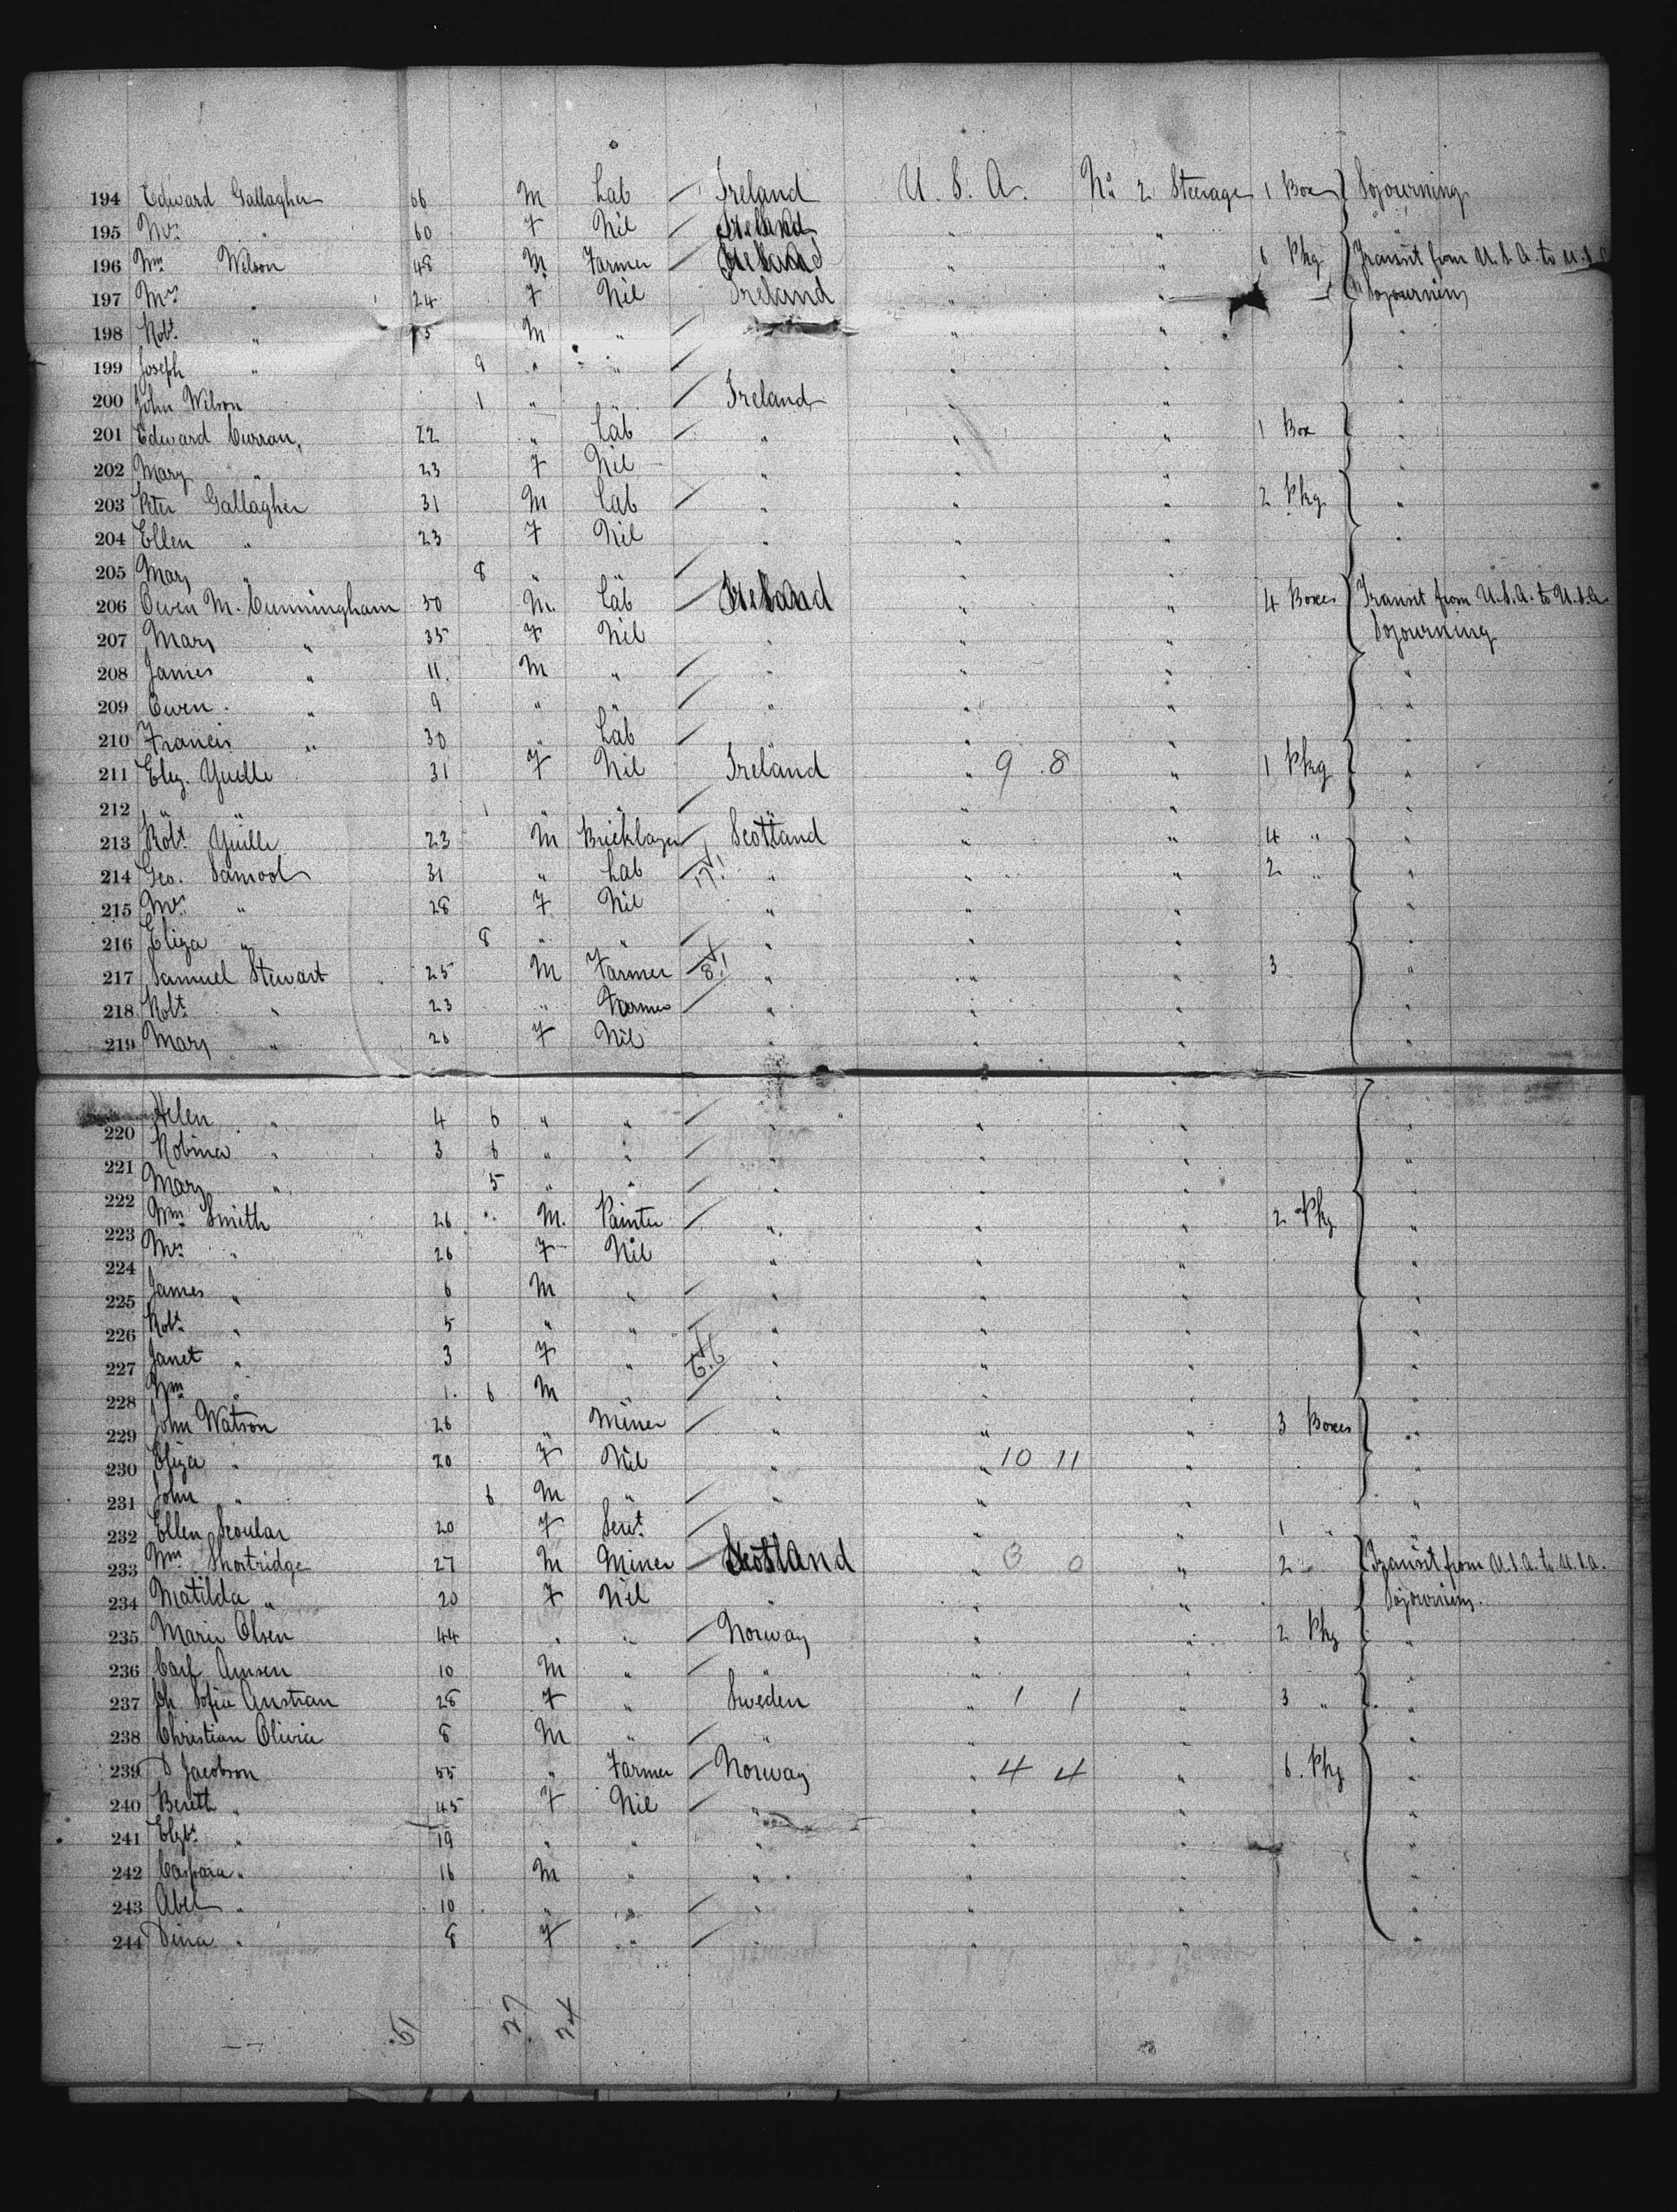 194 Edward Gallagher 66 M Lab Ireland U. S. A. No 2 Steerage 1 Box Sojourning
195 Mrs " 60 F Nil Ireland " " "
196 Wm Wilson 48 M Farmer Ireland " " 6 Pkg Transit from U.S.A. to U.S.
197 Mrs " 24 F Nil Ireland " " Sojourning
198 Robt " M " " " "
199 Joseph " 9 " " " " "
200 John Wilson 1 " " Ireland " " "
201 Edward Curran 22 " Lab " " " 1 Box "
202 Mary " 23 F Nil " " " "
203 Peter Gallagher 31 M Lab " " " 2 Pkg "
204 Ellen " 23 F Nil " " " "
205 Mary " 8 " " " " " "
206 Owen M. Cunningham 50 M. Lab Ireland " " 4 Boxes Transit from U.S.A. to U.S.A.
207 Mary " 35 F Nil " " " Sojourning
208 James " 11 M " " " " "
209 Owen " 9 " " " " " "
210 Francis " 30 " Lab " " " "
211 Eliz. Yuille 31 F Nil Ireland " 9 8 " 1 Pkg "
212 " " 1 " " " " " "
213 Robt Yuille 23 M Bricklayer Scotland " " 4 " "
214 Geo. 31 " Lab 17.1 " " " 2 " "
215 Mrs " 28 F Nil " " " "
216 Eliza " 8 " " " " " "
217 Samuel Stewart 25 M Farmer 8.1 " " " 3 "
218 Robt " 23 " Farmer " " " "
219 Mary " 26 F Nil " " " "
220 Helen " 4 6 " " " " " "
221 Robina " 3 6 " " " " " "
222 Mary " 5 " " " " " "
223 Wm Smith 26 M. Painter " " " 2 Pkg "
224 Mrs " 26 F Nil " " " "
225 James " 6 M " " " " "
226 Robt " 5 " " " " " "
227 Janet " 3 F " 6.6 " " " "
228 Wm " 1. 6 M " " " " "
229 John Watson 26 " Miner " " " 3 Boxes "
230 Eliza " 20 F Nil " " 10 11 " "
231 John " 6 M " " " " "
232 Ellen Scoular 20 F Servt " " " 1 " "
233 Wm Shortridge 27 M Miner Scotland " 3 0 " 2 " Transit from U.S.A. to U.S.A.
234 Matilda " 20 F Nil " " " Sojourning.
235 Marie Olsen 44 " " Norway " " 2 Pkg "
236 Carl Amsen 10 M " " " " "
237 Sofia Austrian 28 F " Sweden " 1 1 " 3 " "
238 Christian Olivia 8 M " " " " "
239 D Jacobson 55 " Farmer Norway " 4 4 " 6. Pkg "
240 Bereth " 45 F Nil " " " "
241 Elzbt " 19 " " " " " "
242 Caspara " 16 M " " " " "
243 Abel " 10 " " " " " "
244 Dina " 8 F " " " " "
51 27 24